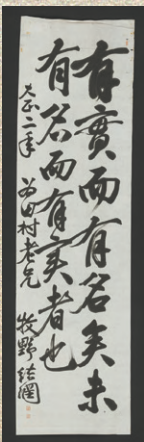 有實而有名矣未
有名而有実者也
大正二年 為田村老兄
牧野